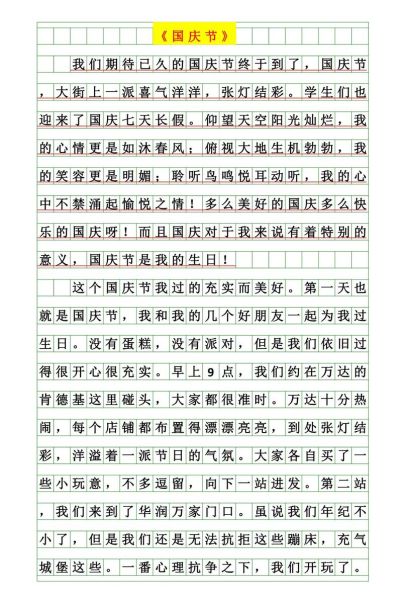 《国庆节》
我们期待已久的国庆节终于到了，国庆节
，大街上一派喜气洋洋，张灯结彩。学生们也
迎来了国庆七天长假。仰望天空阳光灿烂，我
的心情更是如沐春风；俯视大地生机勃勃，我
的笑容更是明媚；聆听鸟鸣悦耳动听，我的心
中不禁涌起愉悦之情！多么美好的国庆多么快
乐的国庆呀！而且国庆对于我来说有着特别的
意义，国庆节是我的生日！
这个国庆节我过的充实而美好。第一天也
就是国庆节，我和我的几个好朋友一起为我过
生日。没有蛋糕，没有派对，但是我们依旧过
得很开心很充实。早上9点，我们约在万达的
肯德基这里碰头，大家都很准时。万达十分热
闹，每个店铺都布置得漂漂亮亮，到处张灯结
彩，洋溢着一派节日的气氛。大家各自买了一
些小玩意，不多逗留，向下一站进发。第二站
，我们来到了华润万家门口。虽说我们年纪不
小了，但是我们还是无法抗拒这些蹦床，充气
城堡这些。一番心理抗争之下，我们开玩了。